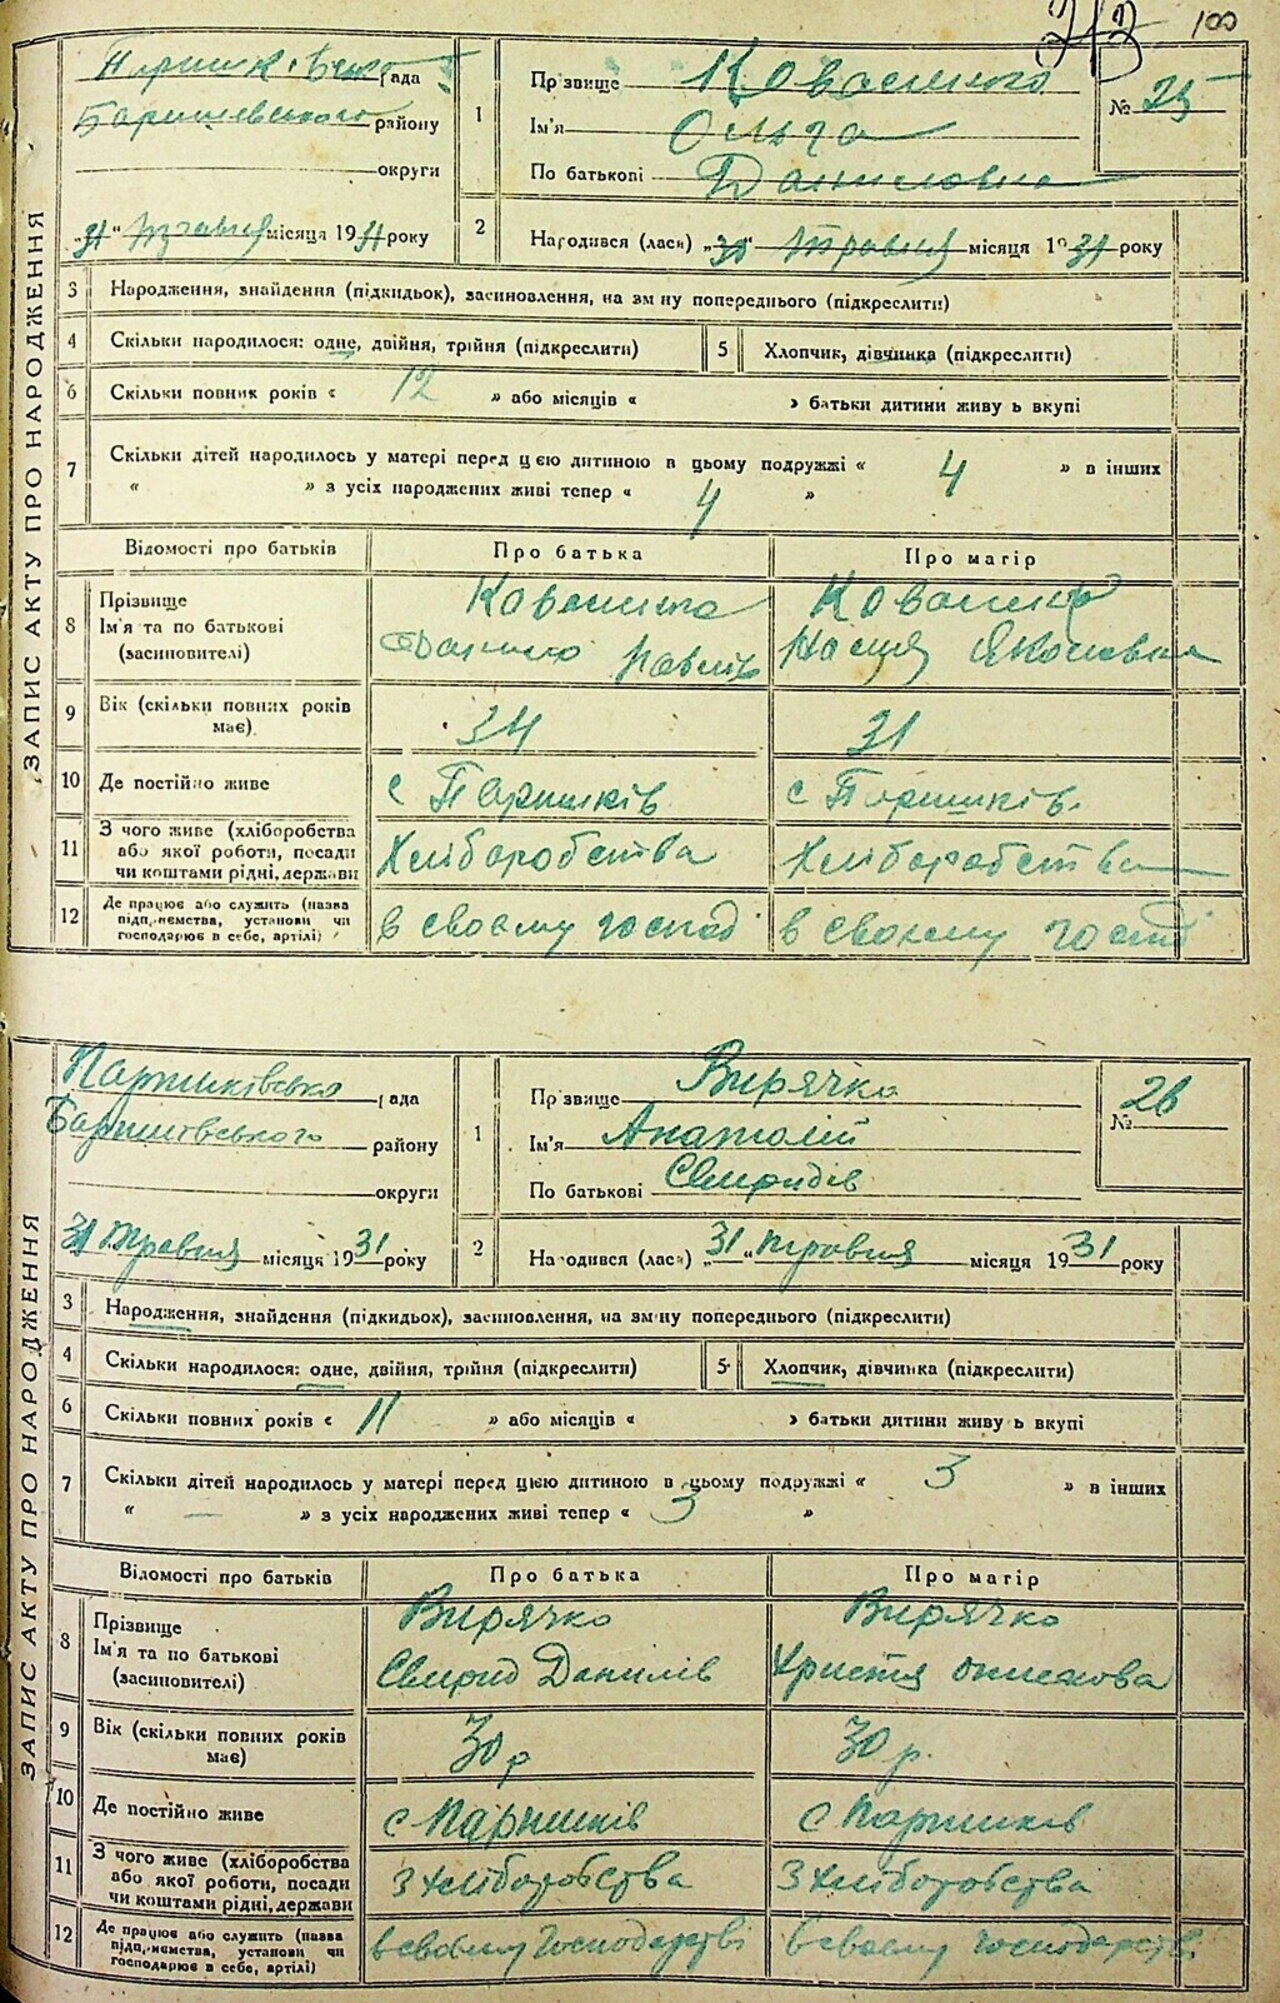 213 100
ЗАПИС АКТУ ПРО НАРОДЖЕННЯ
Паришківська рада
Баришевського району
округи
„31“ травня місяця 1931 року
1
Прізвище
Ім'я Ольга
По батькові Даниловна
№ 25
2
Народився (лася) „30“ травня місяця 1931 року
3 Народження, знайдення (підкидьок), засиновлення, на зміну попереднього (підкреслити)
4 Скільки народилося: одне, двійня, трійня (підкреслити)
5 Хлопчик, дівчинка (підкреслити)
6 Скільки повних років « 12 » або місяців « » батьки дитини живуть вкупі
7 Скільки дітей народилось у матері перед цією дитиною в цьому подружжі « 4 » в інших
« » з усіх народжених живі тепер « 4 »
Відомості про батьків Про батька Про матір
8 Прізвище
Ім'я та по батькові
(засиновителі)
Данило Павлів
Настя Яковловна
9 Вік (скільки повних років має) 34 31
10 Де постійно живе с Паришків с Паришків.
11 З чого живе (хліборобства або якої роботи, посади чи коштами рідні, держави Хліборобства Хліборобства
12 Де працює або служить (назва підприємства, установи чи господарює в себе, артілі) в своєму господ в своєму господ
ЗАПИС АКТУ ПРО НАРОДЖЕННЯ
Паришківська рада
Баришівського району
округи
31 травня місяця 1931 року
1
Прізвище Вирячко
Ім'я Анатолій
По батькові Свиридів
№ 26
2
Народився (лася) „31“ травня місяця 1931 року
3 Народження, знайдення (підкидьох), засиновлення, на зміну попереднього (підкреслити)
4 Скільки народилося: одне, двійня, трійня (підкреслити)
5 Хлопчик, дівчинка (підкреслити)
6 Скільки повних років « 11 » або місяців « » батьки дитини живуть вкупі
7 Скільки дітей народилось у матері перед цією дитиною в цьому подружжі « 3 » в інших
« — » з усіх народжених живі тепер « 3 »
Відомості про батьків Про батька Про матір
8 Прізвище
Ім'я та по батькові
(засиновителі)
Вирячко
Свирид Данилів
Вирячко
Христя
9 Вік (скільки повних років має) 30 р 30 р.
10 Де постійно живе с Паришків с Паришків
11 З чого живе (хліборобства або якої роботи, посади чи коштами рідні, держави З хліборобства З хліборобства
12 Де працює або служить (назва підприємства, установи чи господарює в себе, артілі) в своєму господарстві в своєму господарстві